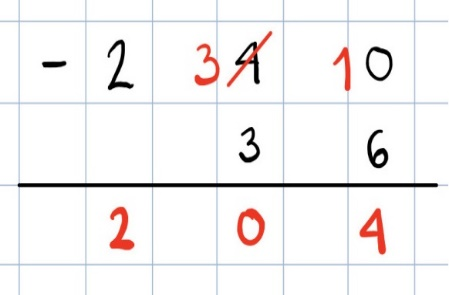 - 2 3 4 1 0
3 6
2 0 4